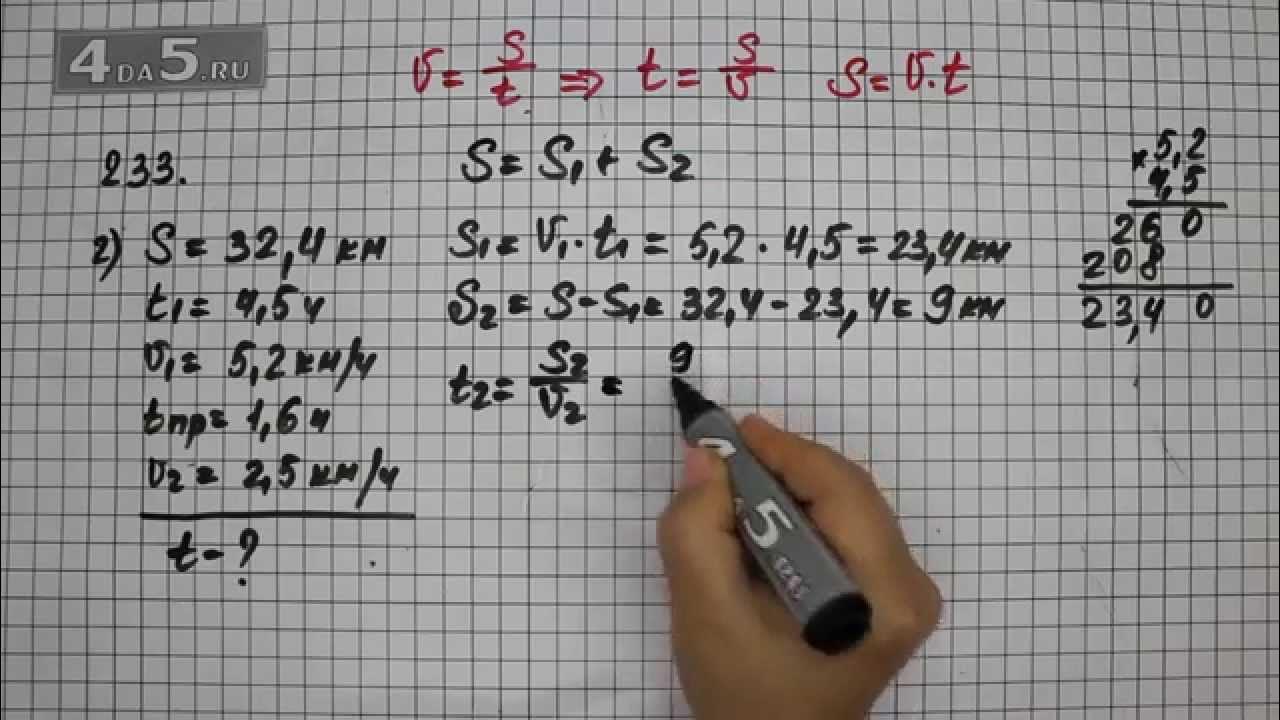 4DA5.RU
v = s/t ⇒ t = s/v S = v·t
233.
S = S₁ + S₂
2) S = 32,4 км
t₁ = 4,5 ч
v₁ = 5,2 км/ч
tпр = 1,6 ч
v₂ = 2,5 км/ч
t - ?
S₁ = v₁·t₁ = 5,2 · 4,5 = 23,4 км
S₂ = S - S₁ = 32,4 - 23,4 = 9 км
t₂ = S₂/v₂ = 9
× 5,2
4,5
26 0
208
23,4 0
5